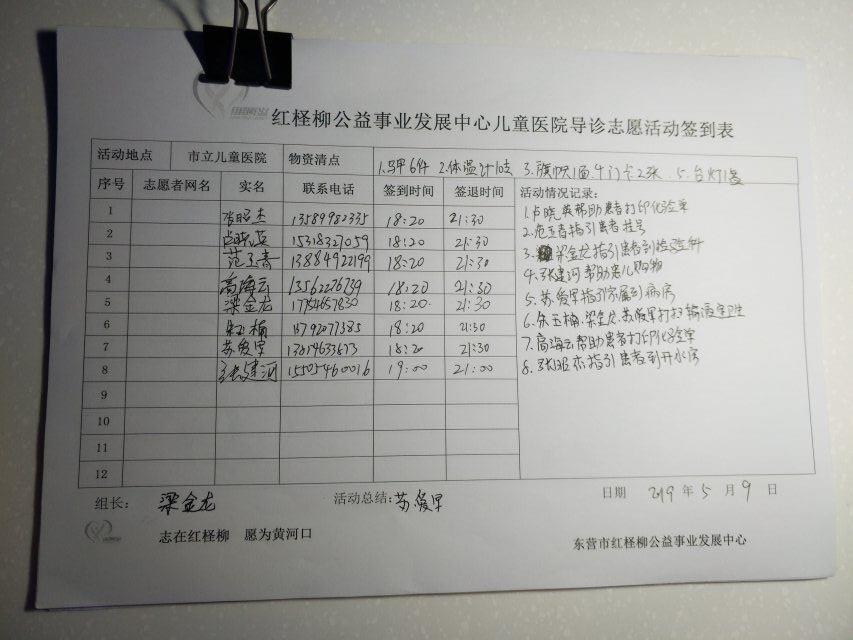 红柽柳公益事业发展中心儿童医院导诊志愿活动签到表
活动地点 市立儿童医院 物资清点 1.马甲6件 2.体温计10支 3.旗帜1面 4.门卡2张 5.台灯1盏
序号 志愿者网名 实名 联系电话 签到时间 签退时间 活动情况记录:
1 昭杰 13589982335 18:20 21:30
2 卢晓英 15318327059 18:20 21:30
3 范玉青 13884922199 18:20 21:30
4 高海云 13562276739 18:20 21:30
5 梁金龙 17754657830 18:20 21:30
6 楠 18:20 21:30
7 苏爱军 18:20 21:30
8 张建河 15505460016 19:00 21:00
9
10
11
12
1.卢晓英帮助患者打印化验单
2.范玉青指引患者挂号
3.梁金龙指引患者到检验科
4.张建河帮助患儿购物
5.苏爱军指引家属到病房
6.徐玉楠.梁金龙.苏爱军打扫输液室卫生
7.高海云帮助患者打印化验单
8.张昭杰指引患者到开水房
组长: 梁金龙 活动总结: 苏爱军 日期 2019 年 5 月 9 日
志在红柽柳 愿为黄河口
东营市红柽柳公益事业发展中心